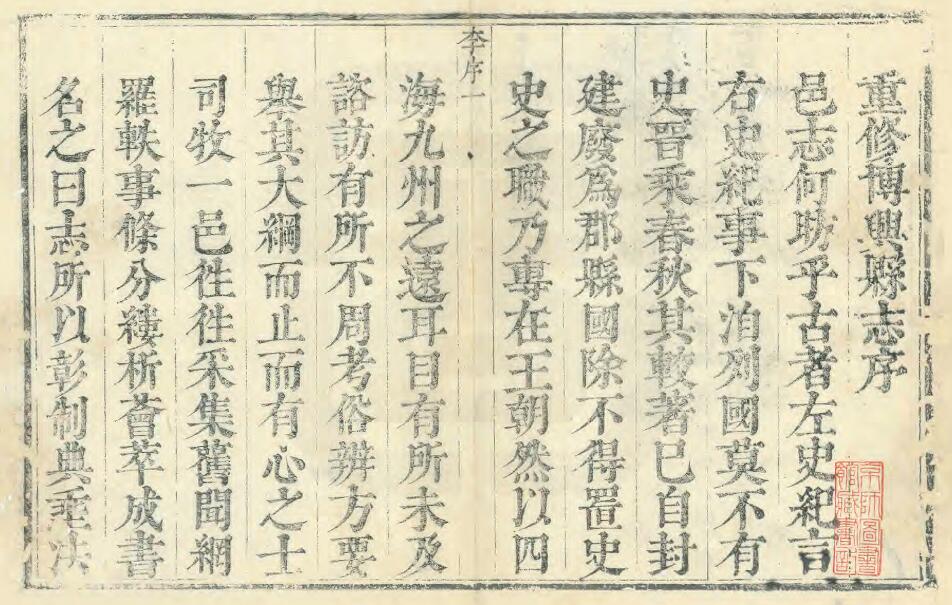 重修博興縣志序
邑志何昉乎古者左史紀言
右史紀事下洎列國莫不有
史晉乘春秋其較著已自封
建廢爲郡縣國除不得置史
史之職乃專在王朝然以四
李序一
海九州之遠耳目有所未及
諮訪有所不周考俗辨方要
舉其大綱而止而有心之士
司牧一邑徃徃采集舊聞網
羅軼事條分縷析薈萃成書
名之曰志所以彰制典垂法
京師圖書
館藏書印